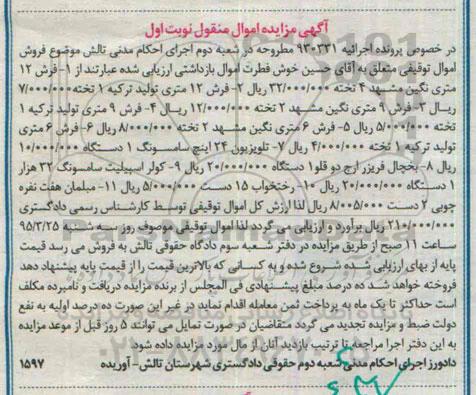 آگهی مزایده اموال منقول نوبت اول
در خصوص پرونده اجرائیه ۹۳۰۳۳۱ مطروحه در شعبه دوم اجرای احکام مدنی تالش موضوع فروش
اموال توقیفی متعلق به آقای حسین خوش فطرت اموال بازداشتی ارزیابی شده عبارتند از ۱- فرش ۱۲
متری نگین مشهد ۴ تخته ۳۲/۰۰۰/۰۰۰ ریال ۲- فرش ۱۲ متری تولید ترکیه ۱ تخته ۷/۰۰۰/۰۰۰
ریال ۳- فرش ۹ متری نگین مشهد ۲ تخته ۱۲/۰۰۰/۰۰۰ ریال ۴- فرش ۹ متری تولید ترکیه ۱
تخته ۵/۰۰۰/۰۰۰ ریال ۵- فرش ۶ متری نگین مشهد ۲ تخته ۸/۰۰۰/۰۰۰ ریال ۶- فرش ۶ متری
تولید ترکیه ۱ تخته ۴/۰۰۰/۰۰۰ ریال ۷- تلویزیون ۲۴ اینچ سامسونگ ۱ دستگاه ۱۰/۰۰۰/۰۰۰
ریال ۸- یخچال فریزر ارج دو قلو ۱ دستگاه ۲۰/۰۰۰/۰۰۰ ریال ۹- کولر اسپیلیت سامسونگ ۳۲ هزار
۱ دستگاه ۲۰/۰۰۰/۰۰۰ ریال ۱۰- رختخواب ۱۵ دست ۵/۰۰۰/۰۰۰ ریال ۱۱- مبلمان هفت نفره
چوبی ۲ دست ۸/۰۰۰/۰۰۰ ریال لذا ارزش کل اموال توقیفی توسط کارشناس رسمی دادگستری
۲۱۰/۰۰۰/۰۰۰ ریال برآورد و ارزیابی می گردد لذا اموال توقیفی موصوف روز سه شنبه ۹۵/۳/۲۵
ساعت ۱۱ صبح از طریق مزایده در دفتر شعبه سوم دادگاه حقوقی تالش به فروش می رسد قیمت
پایه از بهای ارزیابی شده شروع شده و به کسانی که بالاترین قیمت را از قیمت پایه پیشنهاد دهد
فروخته خواهد شد ده درصد مبلغ پیشنهادی فی المجلس از برنده مزایده دریافت و نامبرده مکلف
است حداکثر تا یک ماه به پرداخت ثمن معامله اقدام نماید در غیر این صورت ده درصد اولیه به نفع
دولت ضبط و مزایده تجدید می گردد متقاضیان در صورت تمایل می توانند ۵ روز قبل از موعد مزایده
به این دفتر اجرا مراجعه تا ترتیب بازدید آنان از مال مورد مزایده داده شود
دادورز اجرای احکام مدنی شعبه دوم حقوقی دادگستری شهرستان تالش- آوریده ۱۵۹۷